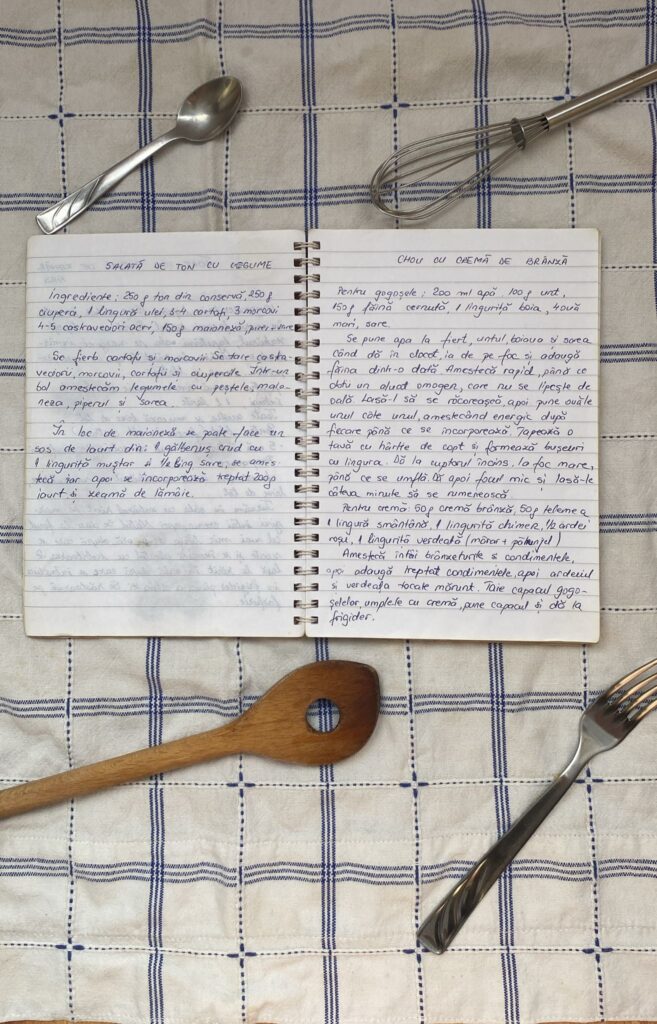 SALATĂ DE TON CU LEGUME
Ingrediente: 250 g ton din conservă, 250 g
ciuperci, 1 lingură ulei, 3-4 cartofi, 3 morcovi
4-5 castraveciori acri, 150g maioneză, piper, sare
Se fierb cartofii și morcovii. Se taie castra-
vecioru, morcovii, cartofii și ciupercile. Într-un
bol amestecăm legumele cu peștele, maio-
neza, piperul și sarea.
În loc de maioneză se poate face un
sos de iaurt din: 1 gălbenuș crud cu
1 linguriță muștar și 1/2 ling sare, se ames-
tecă iar apoi se incorporează treptat 200g
iaurt și zeamă de lămâie.
CHOU CU CREMĂ DE BRÂNZĂ
Pentru gogoșele: 200 ml apă, 100g unt,
150g făină cernută, 1 linguriță boia, 4 ouă
mari, sare.
Se pune apa la fiert, untul, boiaua și sarea
când dă în clocot, ia de pe foc și adaugă
făina dintr-o dată. Amestecă rapid, până ce
obții un aluat omogen, care nu se lipește de
oală. Lasă-l să se răcorească, apoi pune ouăle
unul câte unul, amestecând energic după
fiecare până ce se incorporează. Tapează o
tavă cu hârtie de copt și formează bușeuri
cu lingura. Dă la cuptorul încins, la foc mare,
până ce se umflă. Dă apoi focul mic și lasă-le
câteva minute să se rumenească.
Pentru cremă: 50g cremă brânză, 50g telemea
1 lingură smântână, 1 linguriță chimen, 1/2 ardei
roșu, 1 linguriță verdeață (mărar + pătrunjel)
Amestecă întâi brânzeturile și condimentele,
apoi adaugă treptat condimentele, apoi ardeiul
și verdeața tocate mărunt. Taie capacul gogo-
șelelor, umplele cu cremă, pune capacul și dă la
frigider.